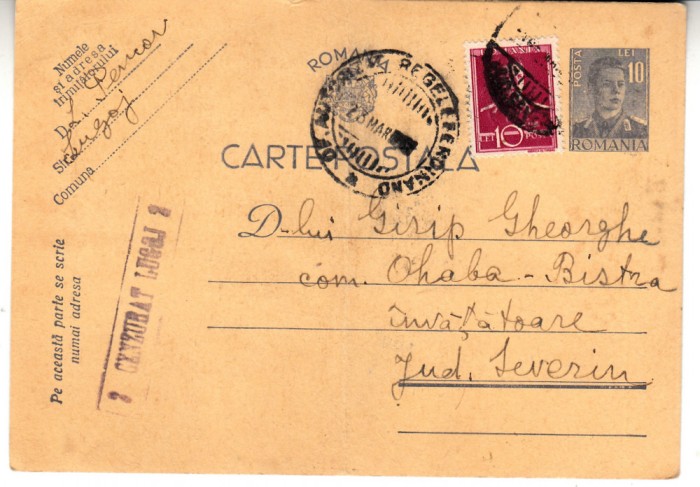 Numele
și adresa
trimițătorului
De
Str.
Lugoj
Comuna
ROMANIA
REGELE FERDINAND
23 MAR
CARTE POSTALA
LEI 10
POSTA
LEI
10
ROMANIA
D-lui Girip Gheorghe
com. Ohaba-Bistra
învățătoare
Jud. Severin
Pe această parte se scrie
numai adresa
2 CENZURAT LUGOJ 2